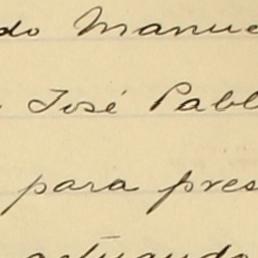 do Manue
José Pabl
para pres
actuando